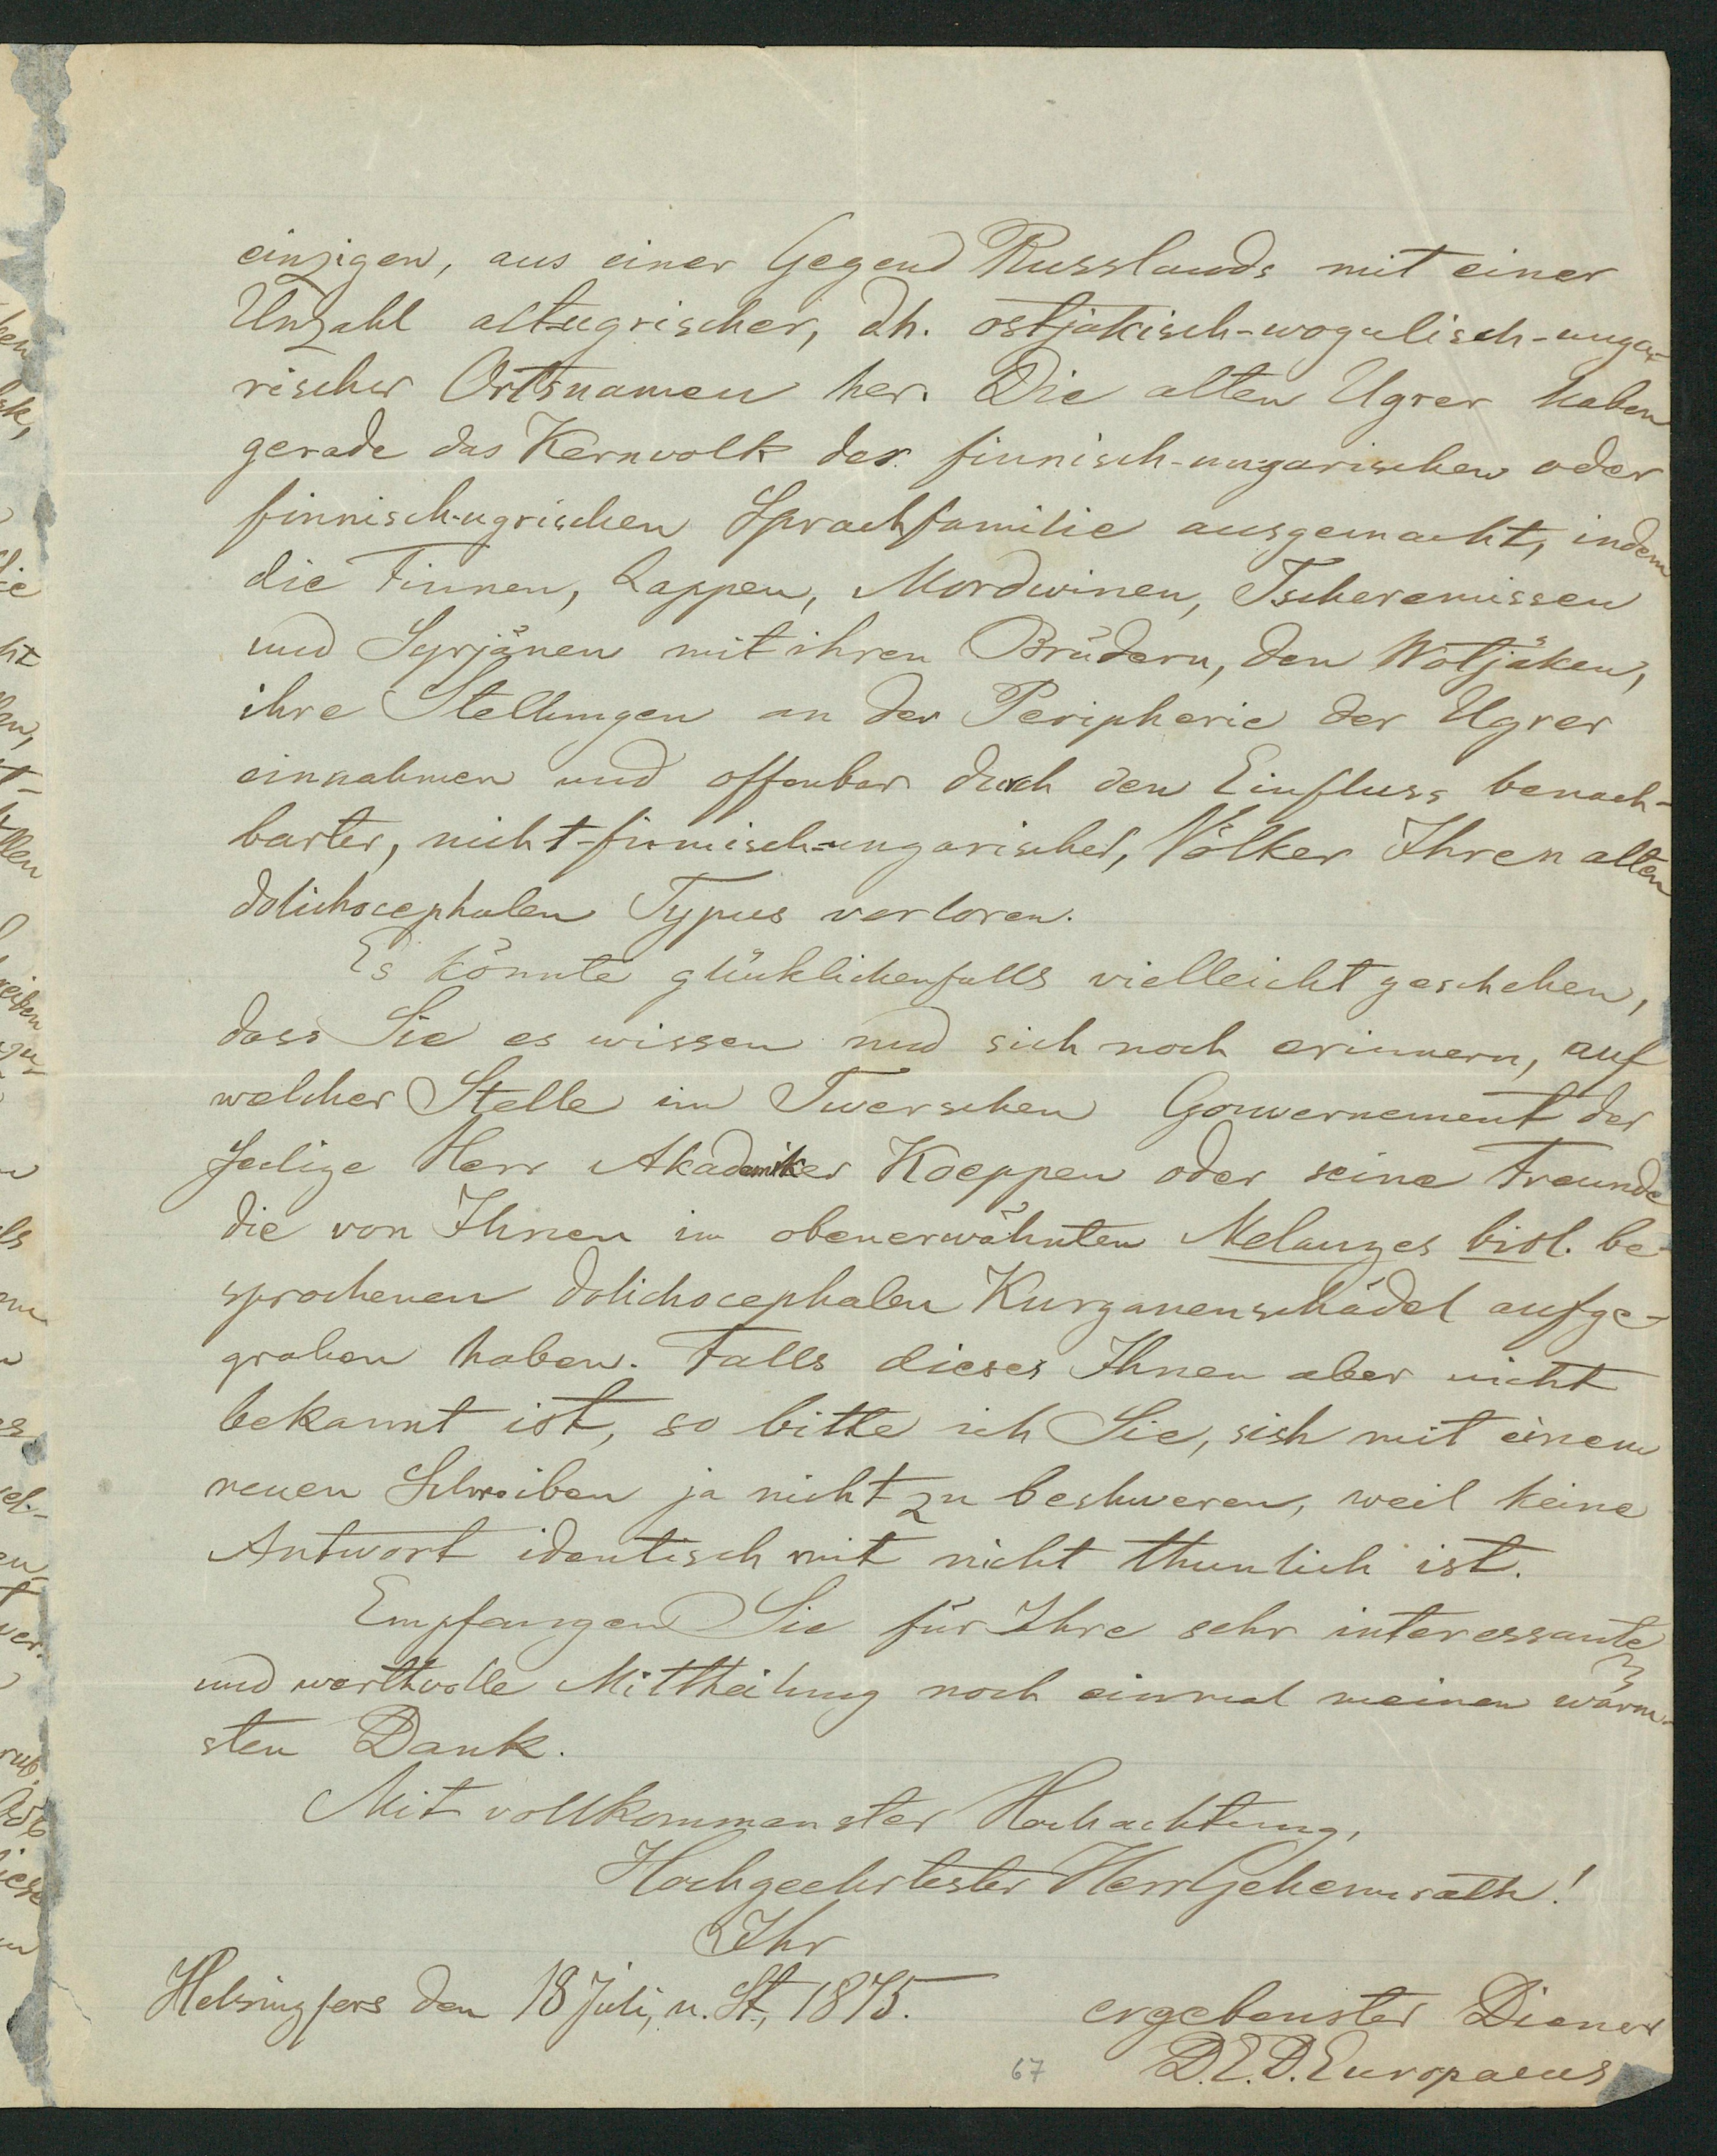 einzigen, aus einer Gegend Russlands mit einer
Unzahl altugrischer, dh. ostjakisch-wogulisch-unga-
rischer Ortsnamen her. Die alten Ugrer haben
gerade das Kernvolk der finnisch-ungarischen oder
finnisch-ugrischen Sprachfamilie ausgemacht, indem
die Finnen, Lappen, Mordwinen, Tscheremissen
und Syrjänen mit ihren Brüdern, den Wotjäken,
ihre Stellungen an der Peripherie der Ugrer
einnahmen und offenbar durch den Einfluss benach-
barter, nicht-finnisch-ungarischer, Völker Ihren alten
dolichocephalen Typus verloren.
Es könnte glücklichenfalls vielleicht geschehen,
dass Sie es wissen und sich noch erinnern, auf
welcher Stelle im Twerschen Gouvernement der
Selige Herr Akademiker Koeppen oder seine Freunde
die von Ihnen im obenerwähnten Melanges biol. be-
sprochenen dolichocephalen Kurganenschädel aufge-
graben haben. Falls dieses Ihnen aber nicht
bekannt ist, so bitte ich Sie, sich mit einem
neuen Schreiben ja nicht zu beschweren, weil keine
Antwort identisch mit nicht thunlich ist.
Empfangen Sie für Ihre sehr interessante
und werthvolle Mittheilung noch einmal meinen wärm-
sten Dank.
Mit vollkommenster Hochachtung,
Hochgeehrtester Herr Geheimrath!
Ihr
Helsingfors den 18 Juli, n. St., 1875.
ergebenster Diener
D.E.D. Europaeus
67